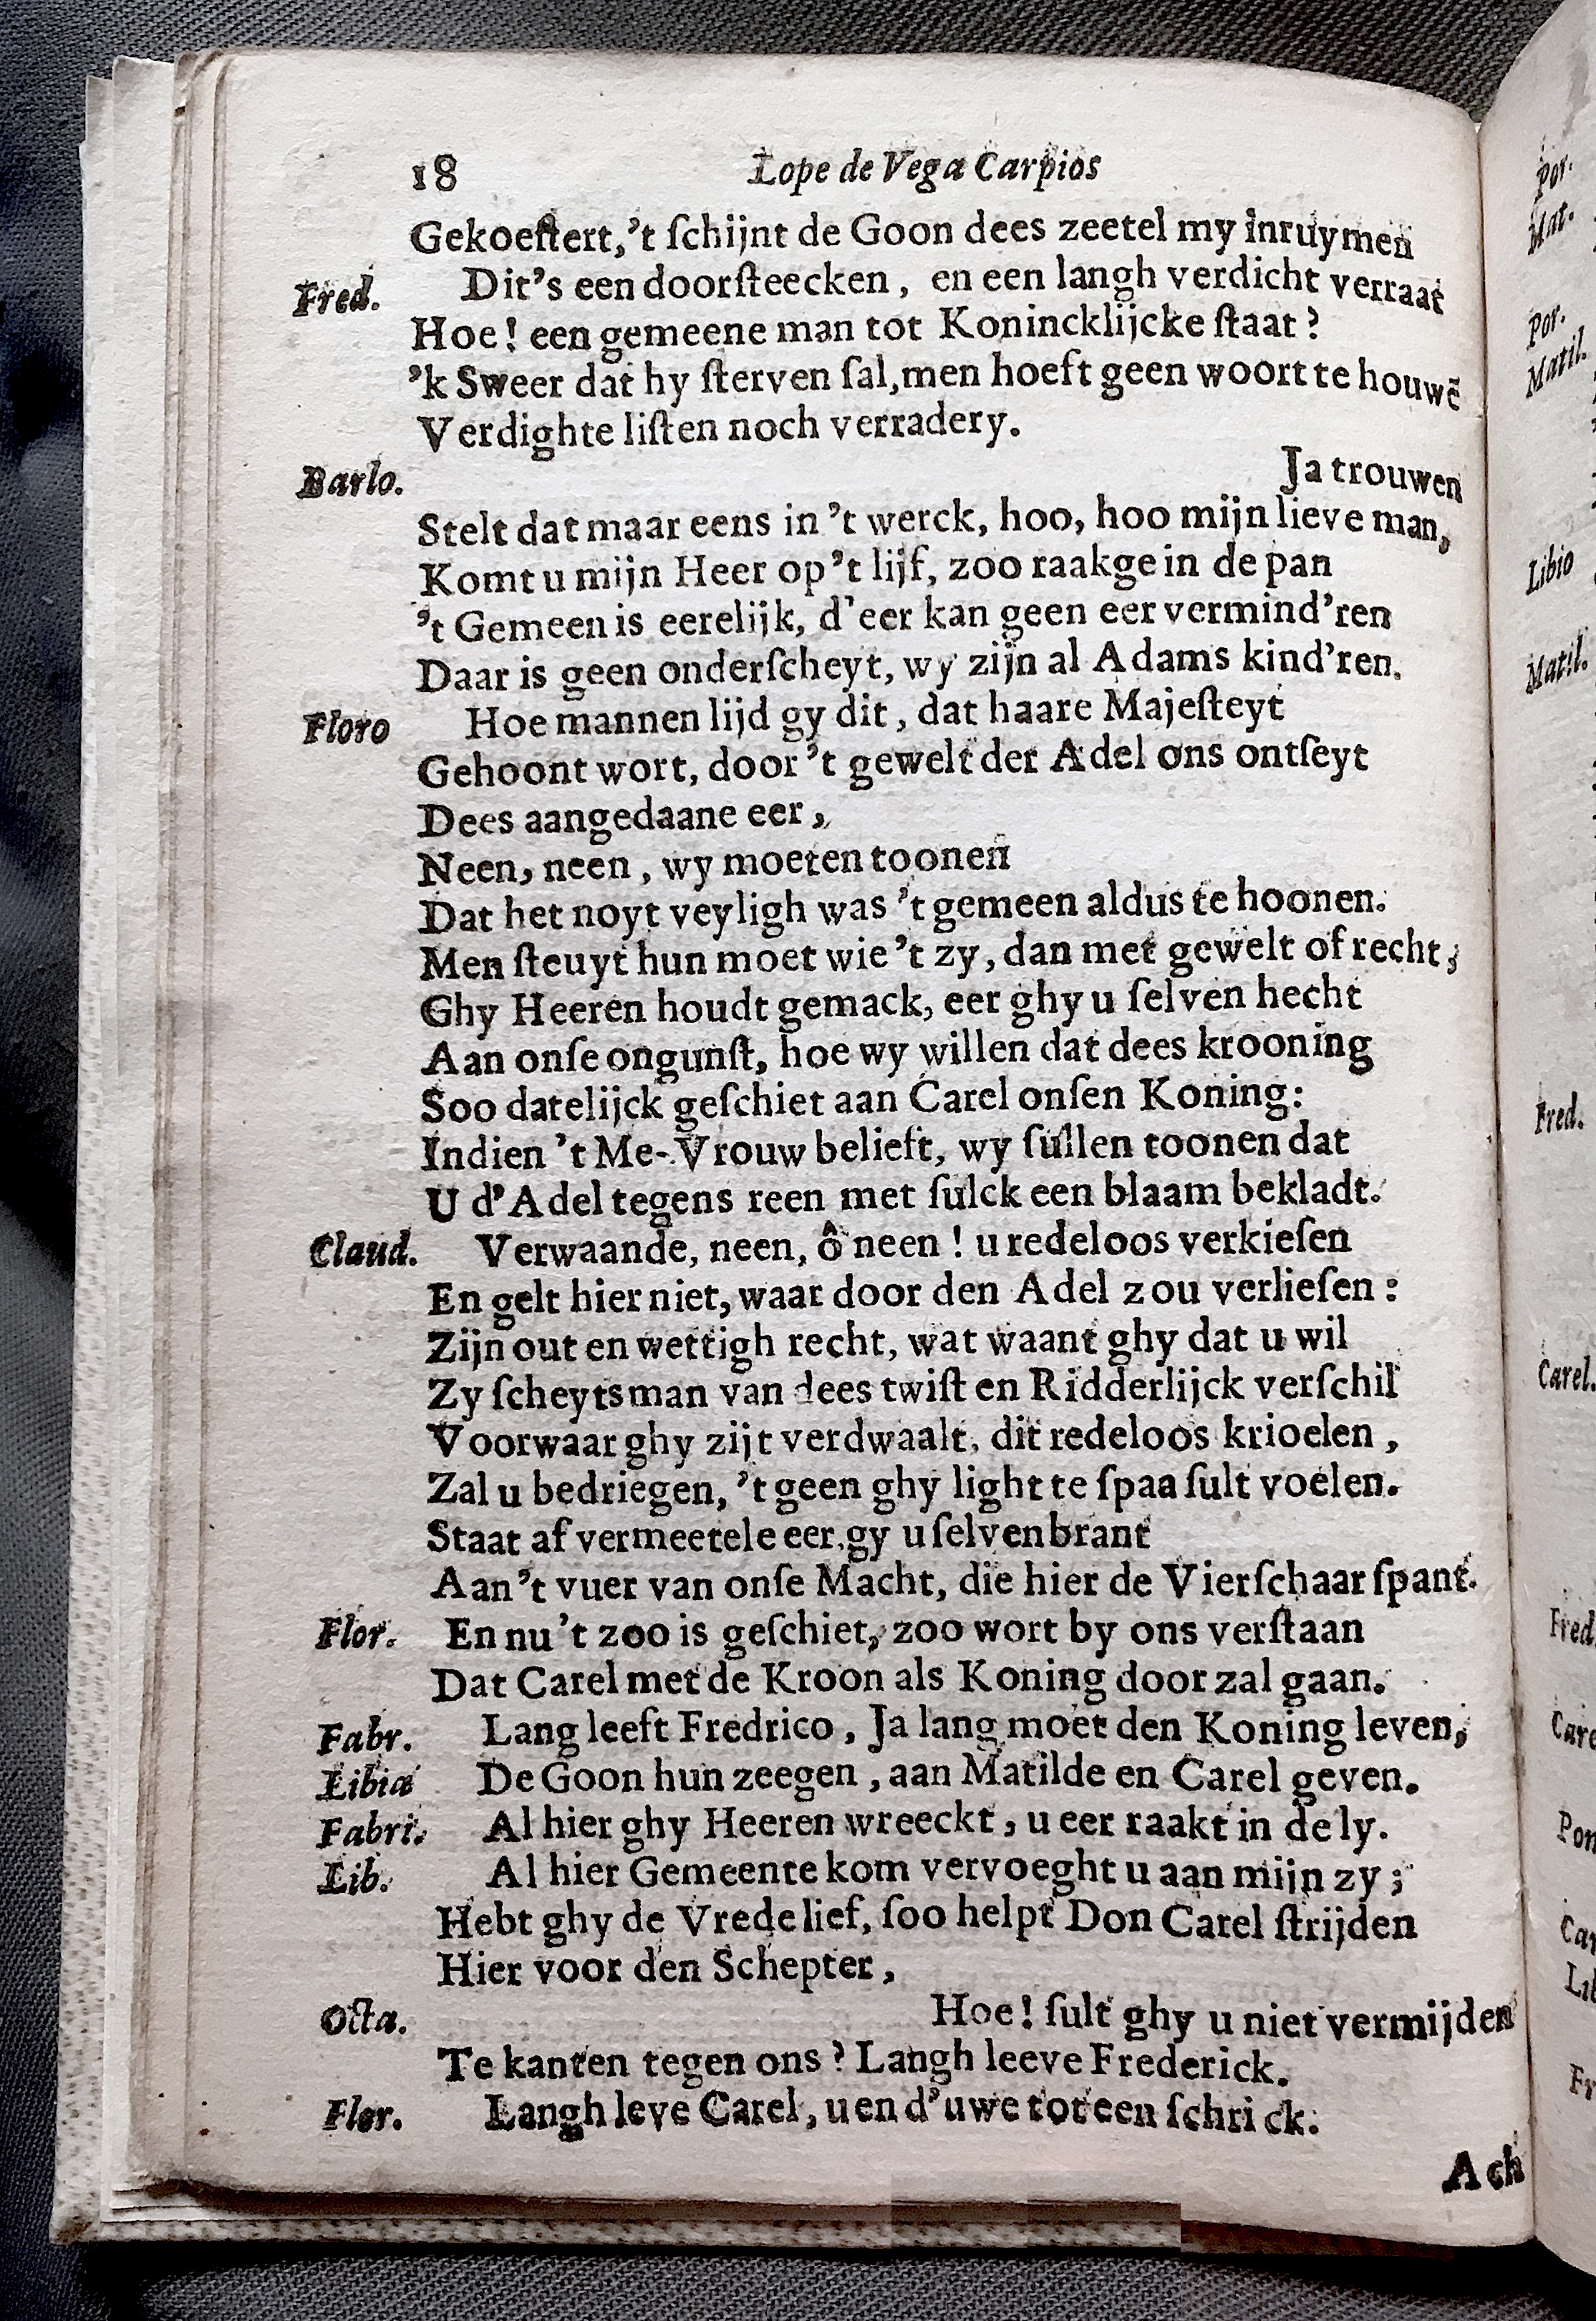 18 Lope de Vega Carpios
Gekoeſtert,’t ſchijnt de Goon dees zeetel my inruymen
Fred. Dit’s een doorſteecken, en een langh verdicht verraat
Hoe! een gemeene man tot Konincklijcke ſtaat?
’k Sweer dat hy ſterven ſal,men hoeft geen woort te houwē
Verdighte liſten noch verradery.
Barlo. Ja trouwen
Stelt dat maar eens in ’t werck, hoo, hoo mijn lieve man,
Komt u mijn Heer op ’t lijf, zoo raakge in de pan
’t Gemeen is eerelijk, d’eer kan geen eer vermind’ren
Daar is geen onderſcheyt, wy zijn al Adams kind’ren.
Floro Hoe mannen lijd gy dit, dat haare Majeſteyt
Gehoont wort, door ’t gewelt der Adel ons ontſeyt
Dees aangedaane eer,
Neen, neen, wy moeten toonen
Dat het noyt veyligh was ’t gemeen aldus te hoonen.
Men ſteuyt hun moet wie ’t zy, dan met gewelt of recht,
Ghy Heeren houdt gemack, eer ghy u ſelven hecht
Aan onſe ongunſt, hoe wy willen dat dees krooning
Soo datelijck geſchiet aan Carel onſen Koning:
Indien ’t Me-Vrouw belieft, wy ſullen toonen dat
U d’Adel tegens reen met ſulck een blaam bekladt.
Claud. Verwaande, neen, ô neen! u redeloos verkieſen
En gelt hier niet, waar door den Adel zou verlieſen:
Zijn out en wettigh recht, wat waant ghy dat u wil
Zy ſcheytsman van dees twiſt en Ridderlijck verſchil
Voorwaar ghy zijt verdwaalt, dit redeloos krioelen,
Zal u bedriegen, ’t geen ghy light te ſpaa ſult voelen.
Staat af vermeetele eer,gy u ſelven brant
Aan ’t vuer van onſe Macht, die hier de Vierſchaar ſpant.
Flor. En nu ’t zoo is geſchiet, zoo wort by ons verſtaan
Dat Carel met de Kroon als Koning door zal gaan.
Fabr. Lang leeft Fredrico, Ja lang moet den Koning leven,
Libiæ De Goon hun zeegen, aan Matilde en Carel geven.
Fabri. Al hier ghy Heeren wreeckt, u eer raakt in de ly.
Lib. Al hier Gemeente kom vervoeght u aan mijn zy;
Hebt ghy de Vrede lief, ſoo helpt Don Carel ſtrijden
Hier voor den Schepter,
Octa. Hoe! ſult ghy u niet vermijden
Te kanten tegen ons? Langh leeve Frederick.
Flor. Langh leve Carel, u en d’uwe tot een ſchrick.
Ach
Por.
Mat.
Por.
Matil.
Libio
Matil.
Fred.
Carel.
Fred
Care